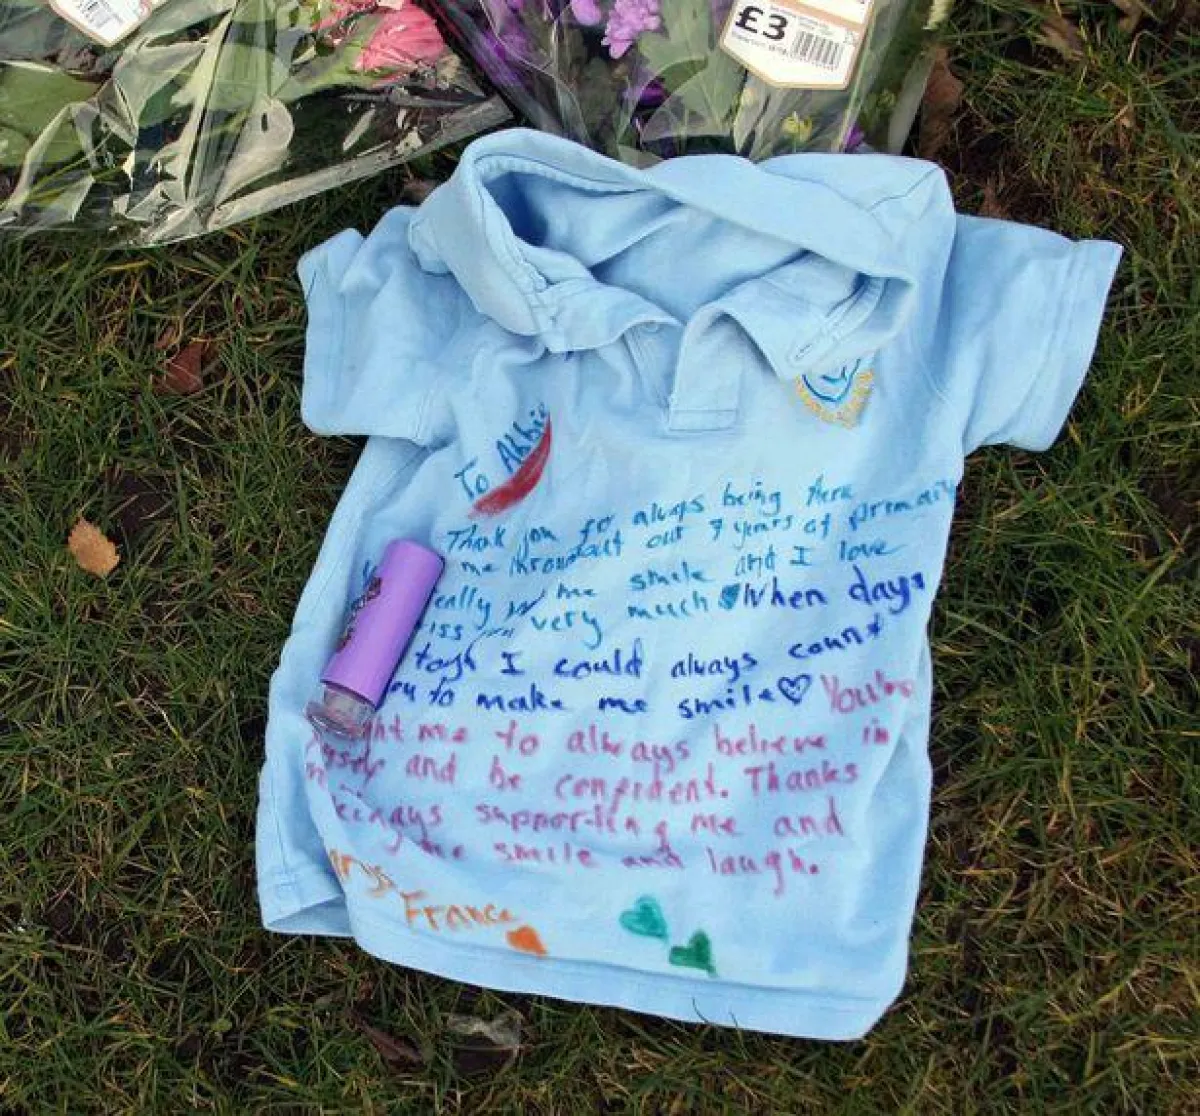 £3
To Abbie
Thank you for always being there
me throughout out 7 years of primary
me smile and I love
very much When days
tough I could always count
you to make me smile You've
me to always believe in
and be confident. Thanks
supporting me and
me smile and laugh.
France